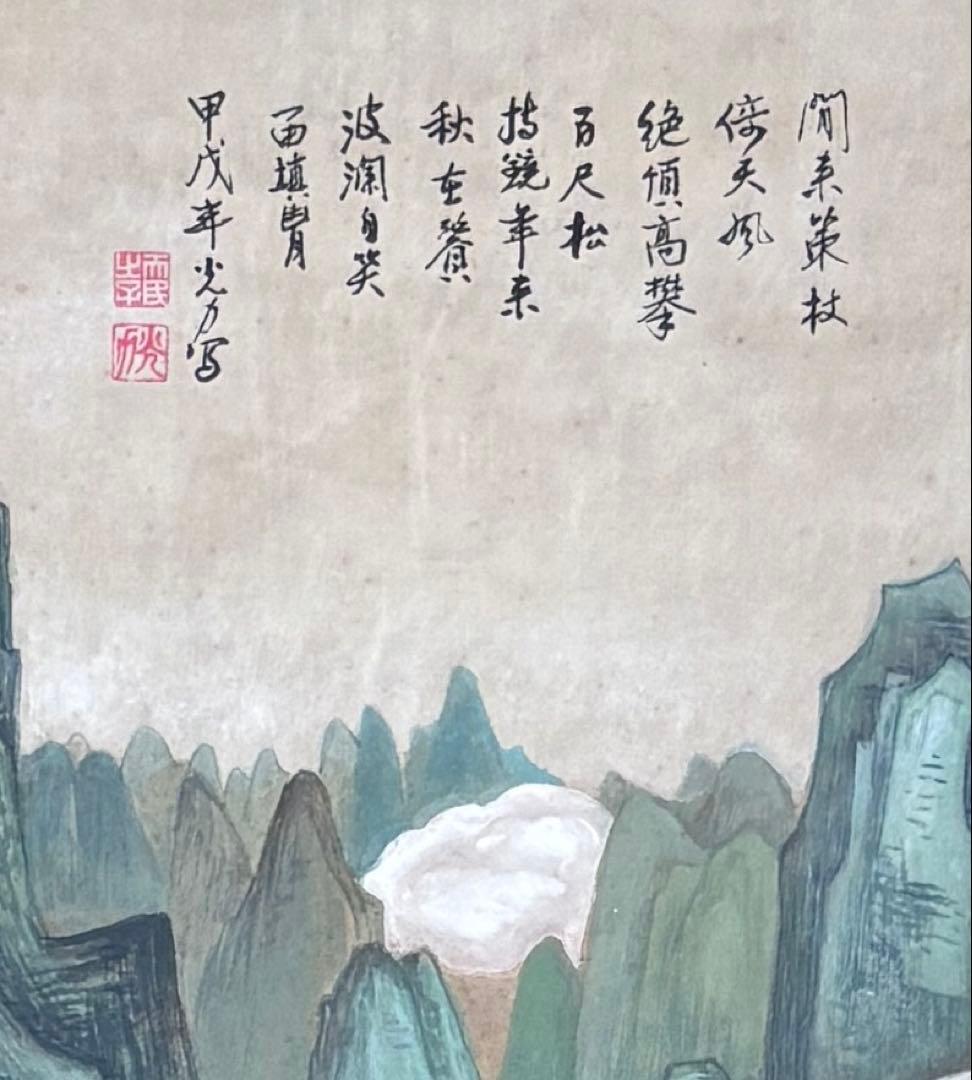 閒来策杖
倚天風
絶頂高攀
百尺松
持鏡年来
秋在鬢
波瀾自笑
面填胷
甲戌年光力写